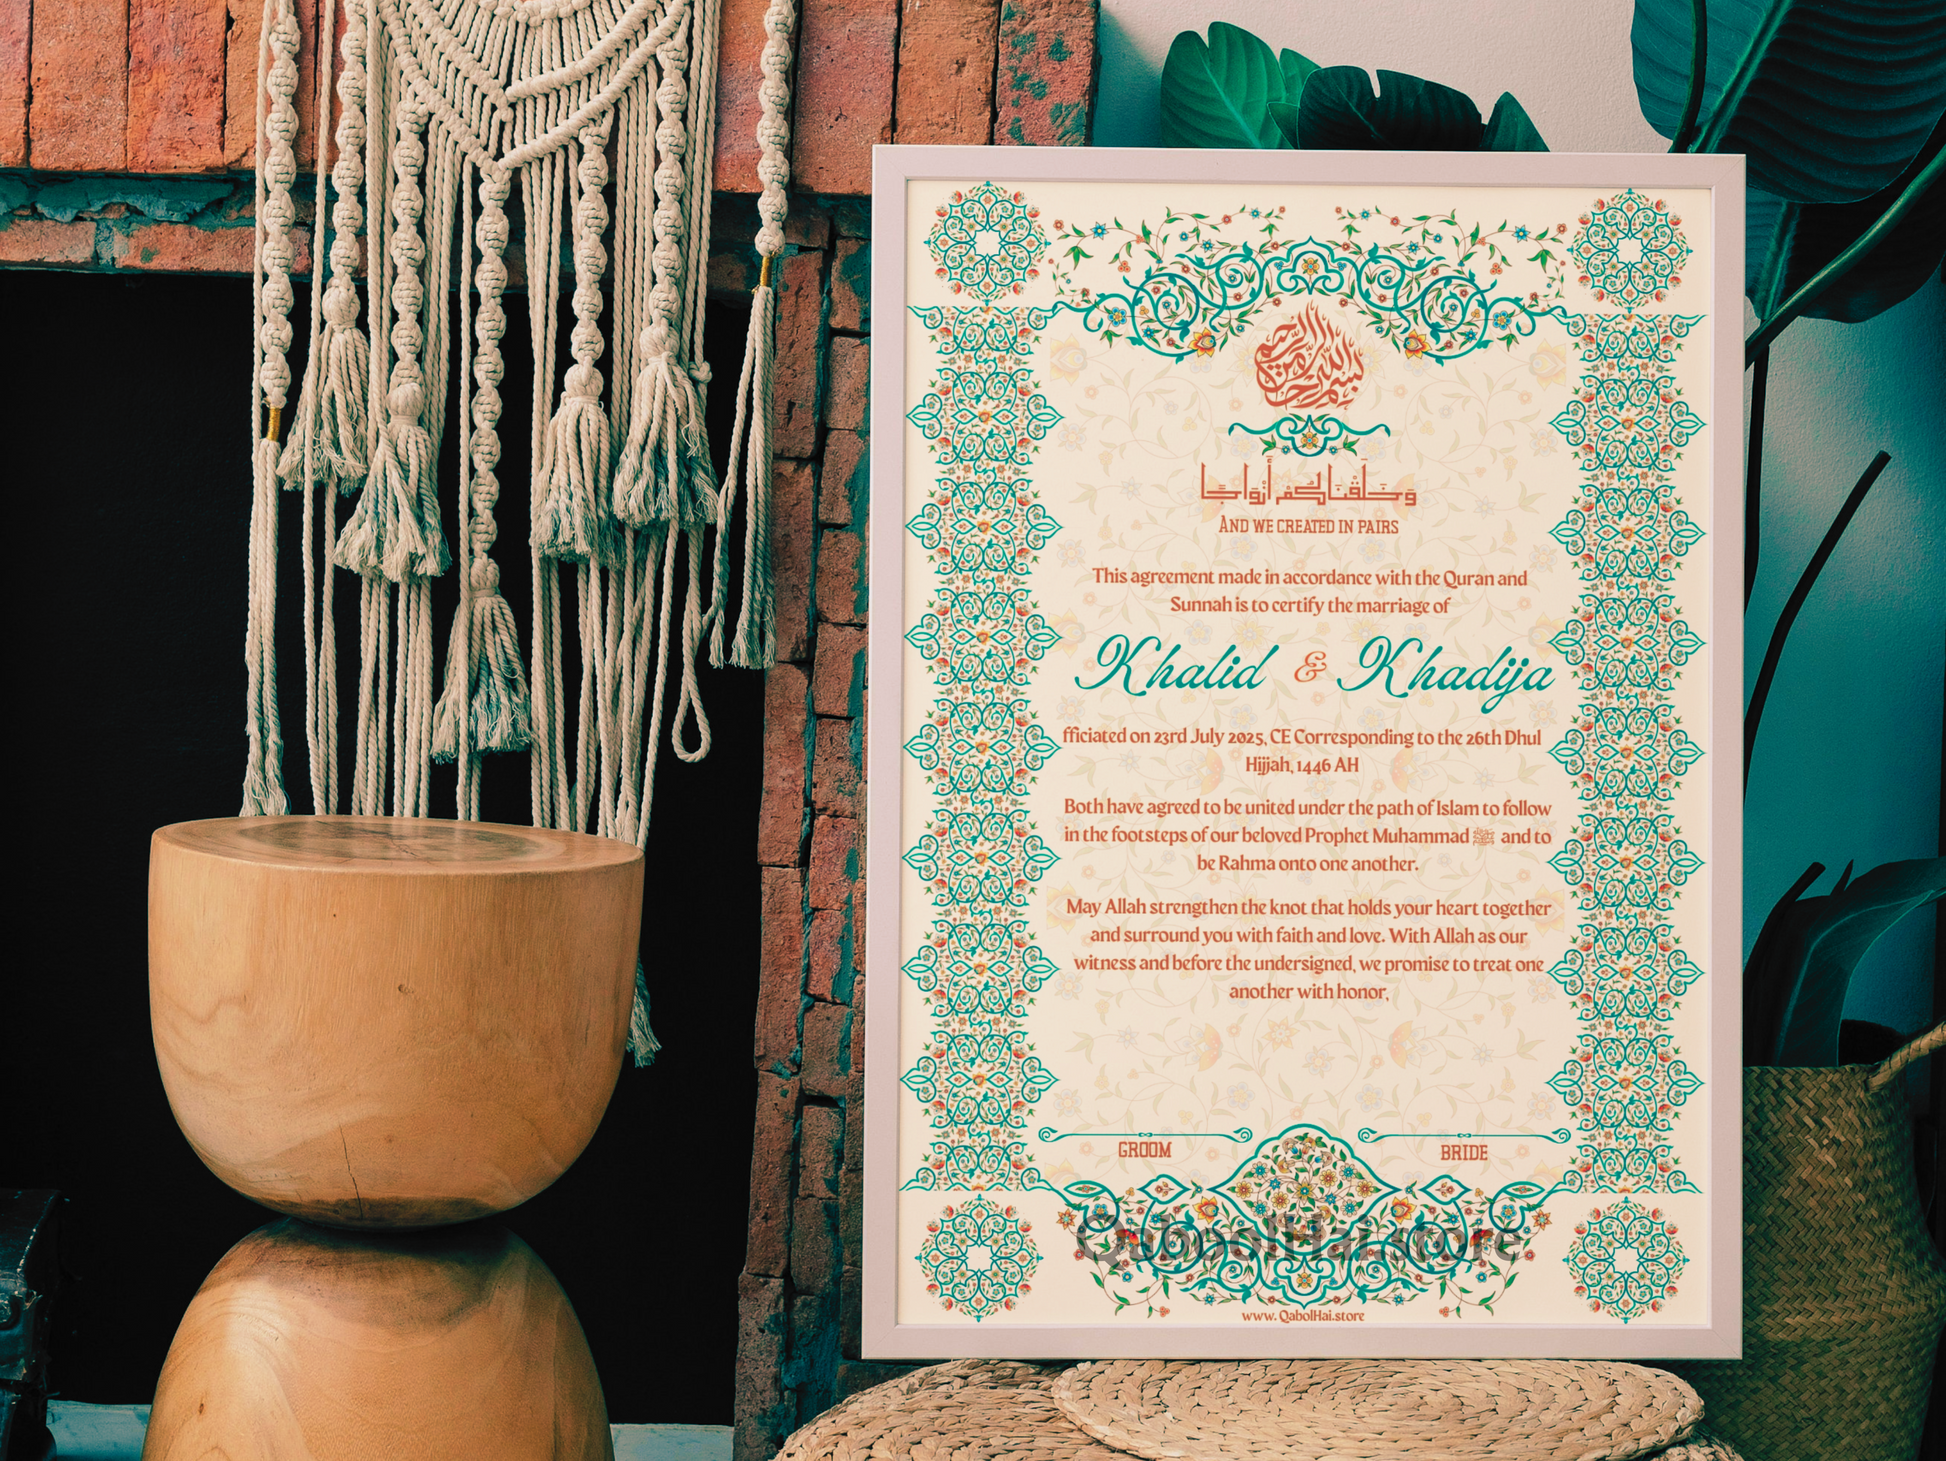 بسم الله الرحمن الرحيم
وَخَلَقْنَاكُمْ أَزْوَاجًا
AND WE CREATED IN PAIRS
This agreement made in accordance with the Quran and
Sunnah is to certify the marriage of
Khalid & Khadija
fficiated on 23rd July 2025, CE Corresponding to the 26th Dhul
Hijjah, 1446 AH
Both have agreed to be united under the path of Islam to follow
in the footsteps of our beloved Prophet Muhammad ﷺ and to
be Rahma onto one another.
May Allah strengthen the knot that holds your heart together
and surround you with faith and love. With Allah as our
witness and before the undersigned, we promise to treat one
another with honor,
GROOM BRIDE
QaboolHai.store
www. QabolHai.store